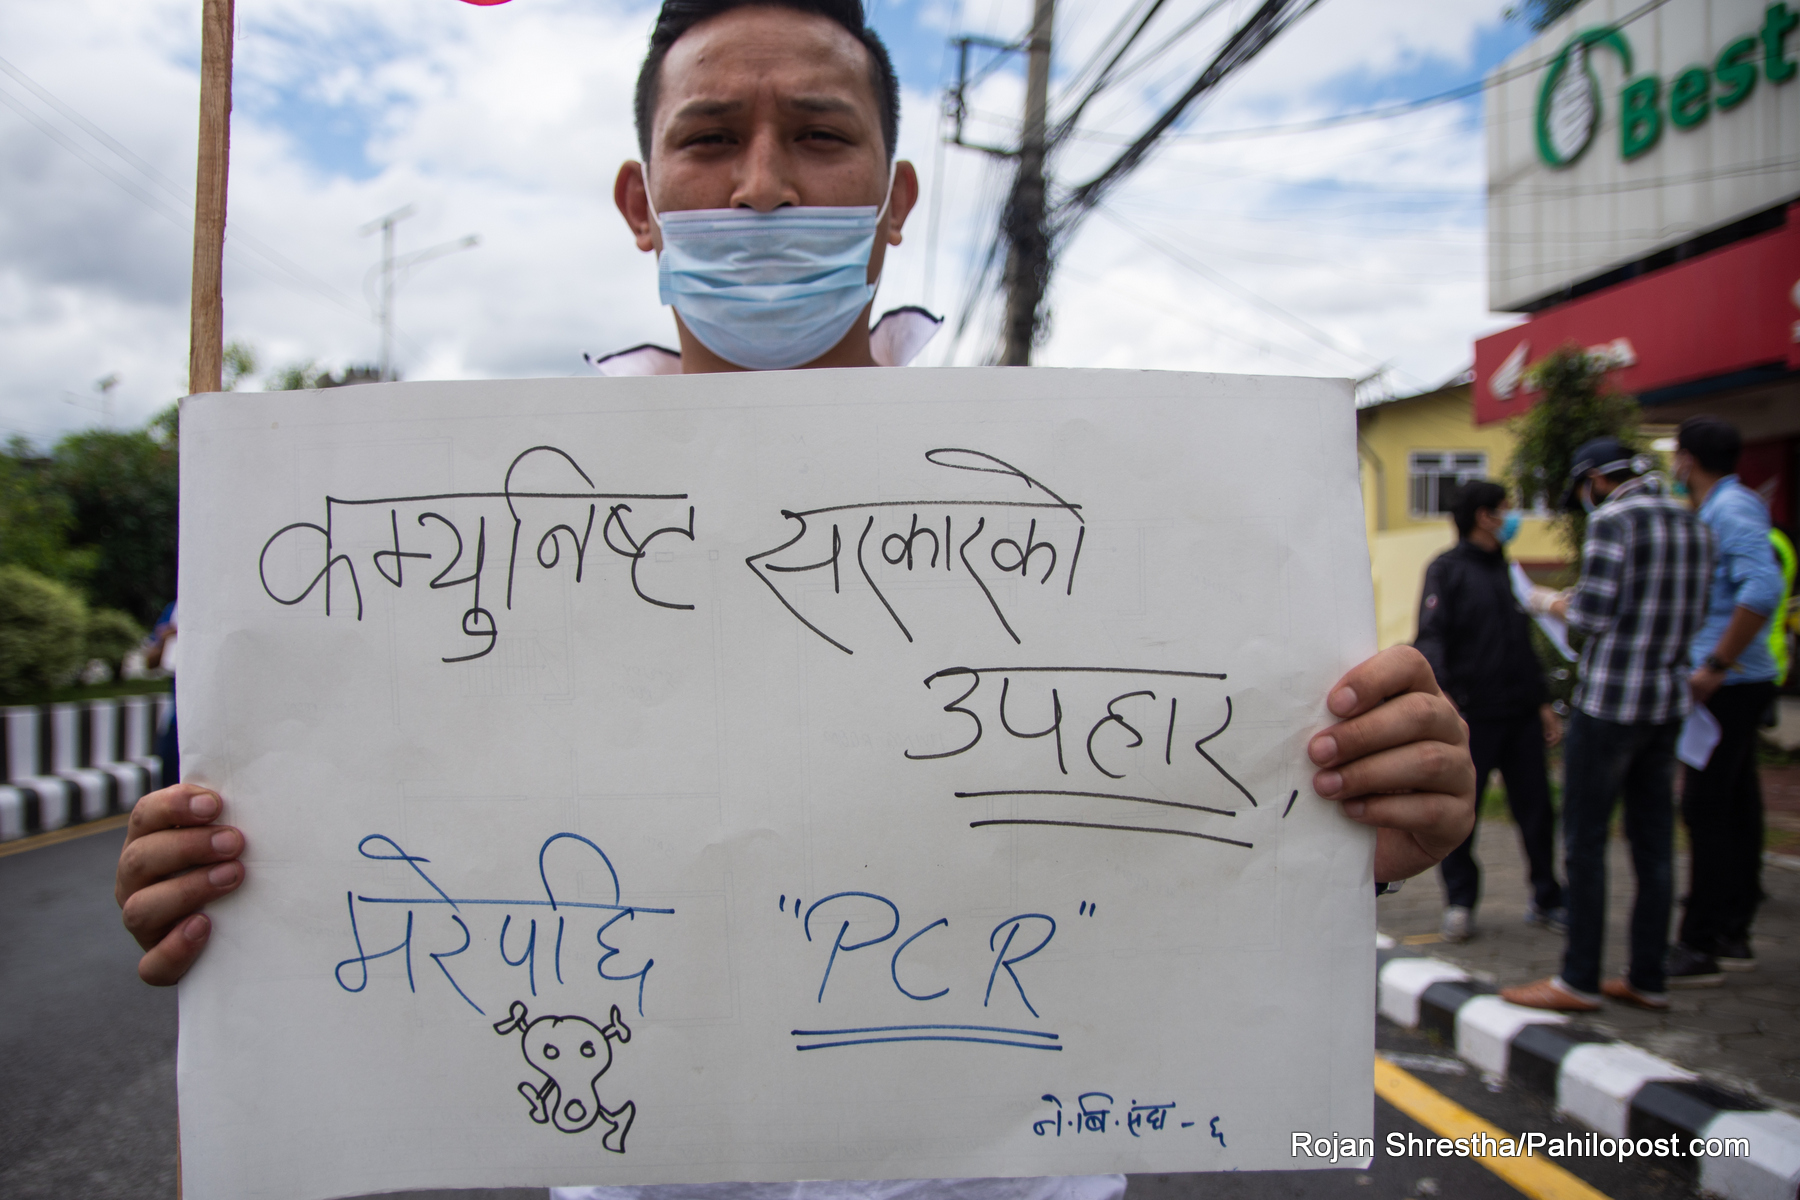 Best
कम्युनिष्ट सरकारको
उपहार,
मरेपछि "PCR"
ने.बि.संघ - ६
Rojan Shrestha/Pahilopost.com